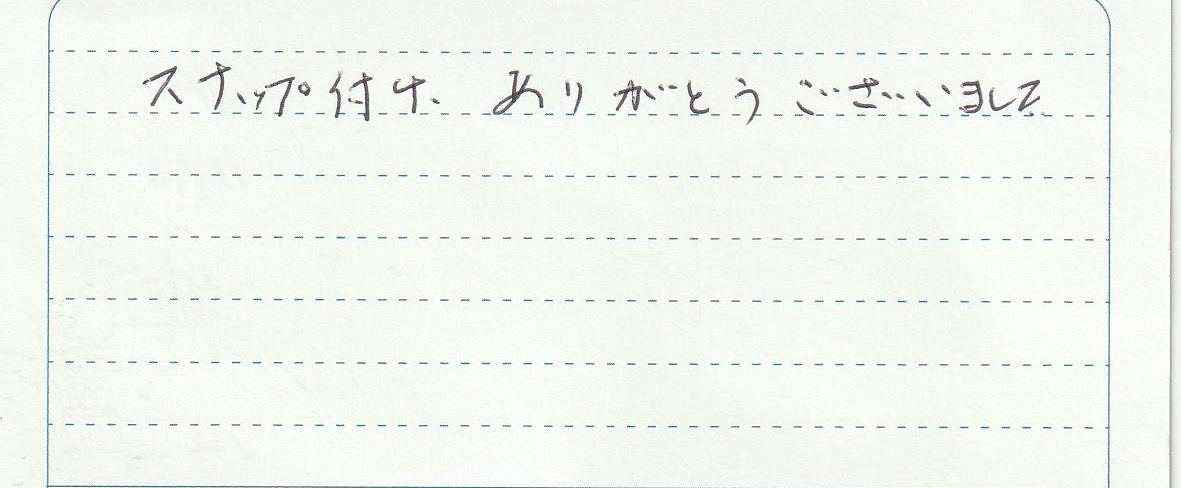 スナップ付け、ありがとうございました